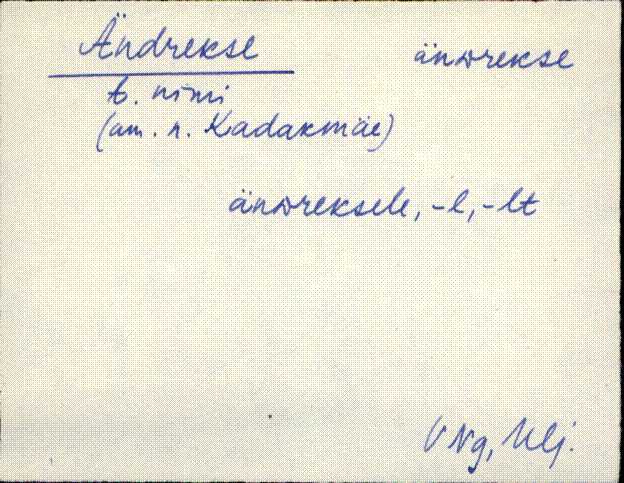 Ändrekse änDrekse
t. nimi
(am. n. Kadakmäe)
änDreksele, -l, -lt
VNg, Ulj.